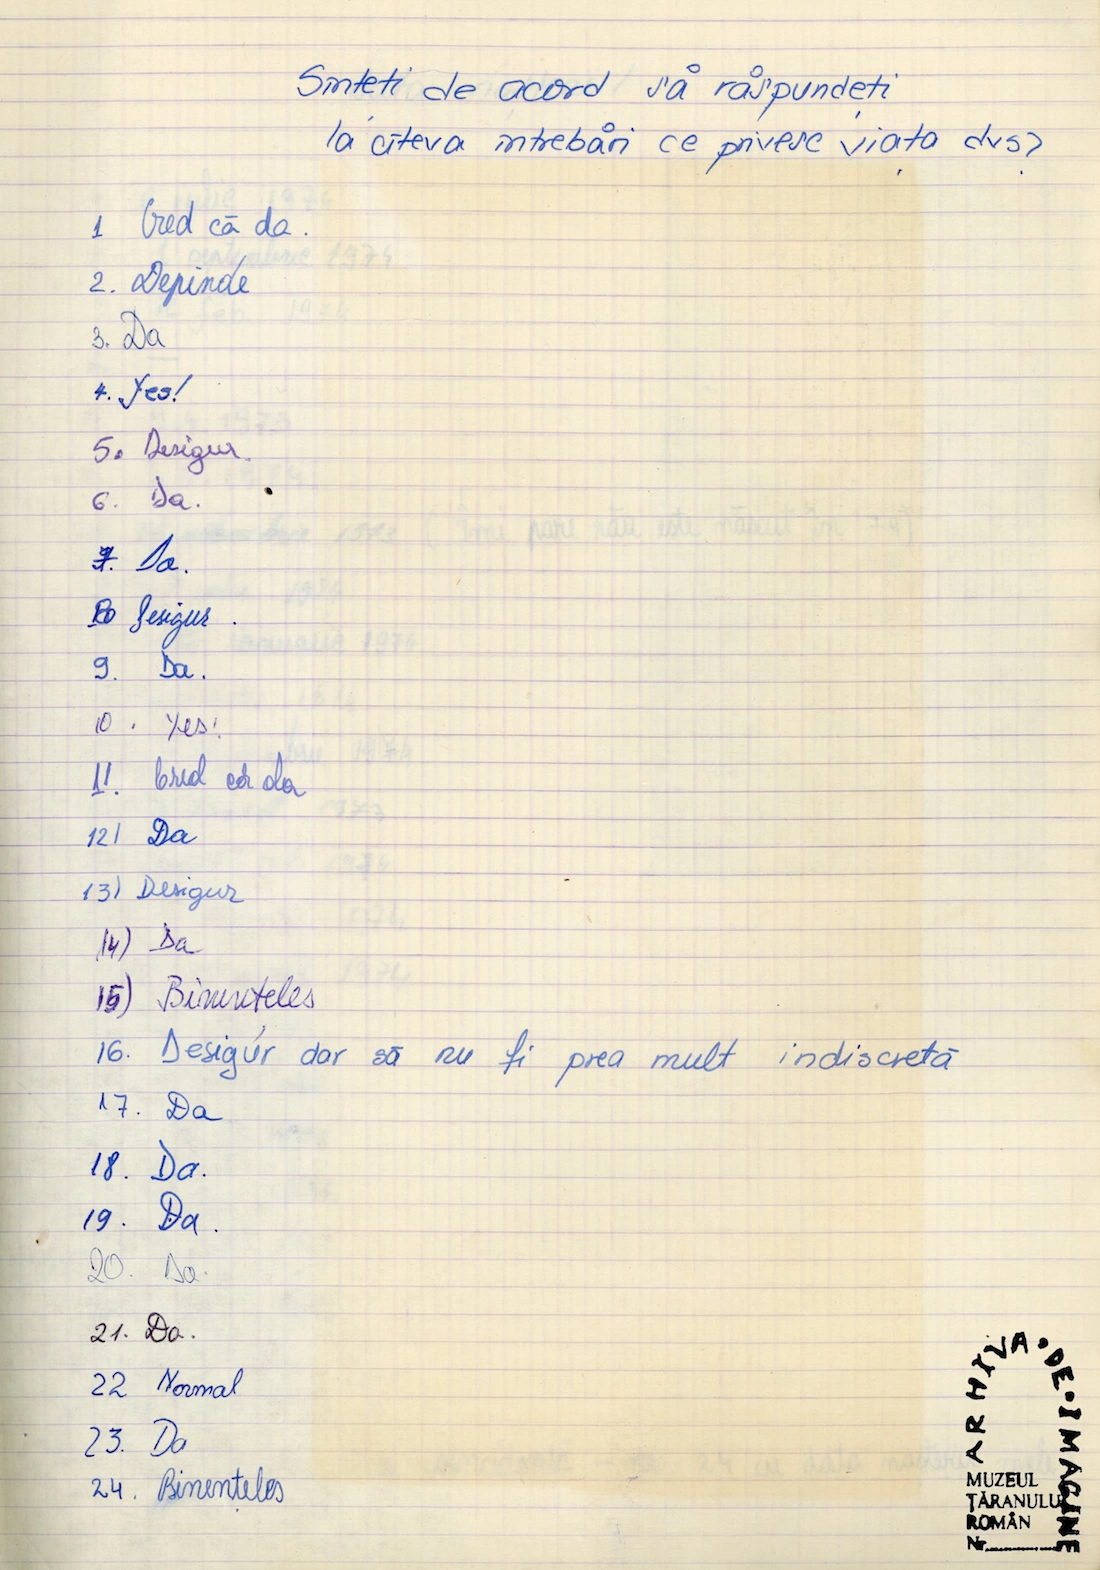 Sînteti de acord să răspundeti
la cîteva întrebări ce privesc viața dvs?
1 Cred că da.
2. Depinde
3. Da
4. Yes!
5. Desigur.
6. Da.
7. Da.
8 Desigur.
9. Da.
10. Yes!
11. Cred că da
12) Da
13) Desigur
14) Da
15) Bineînteles
16. Desigur dar să nu fi prea mult indiscretă
17. Da
18. Da.
19. Da.
20. Da.
21. Da.
22 Normal
23. Da
24. Binențeles
ARHIVA • DE • IMAGINE
MUZEUL
ȚĂRANULUI
ROMÂN
Nr.